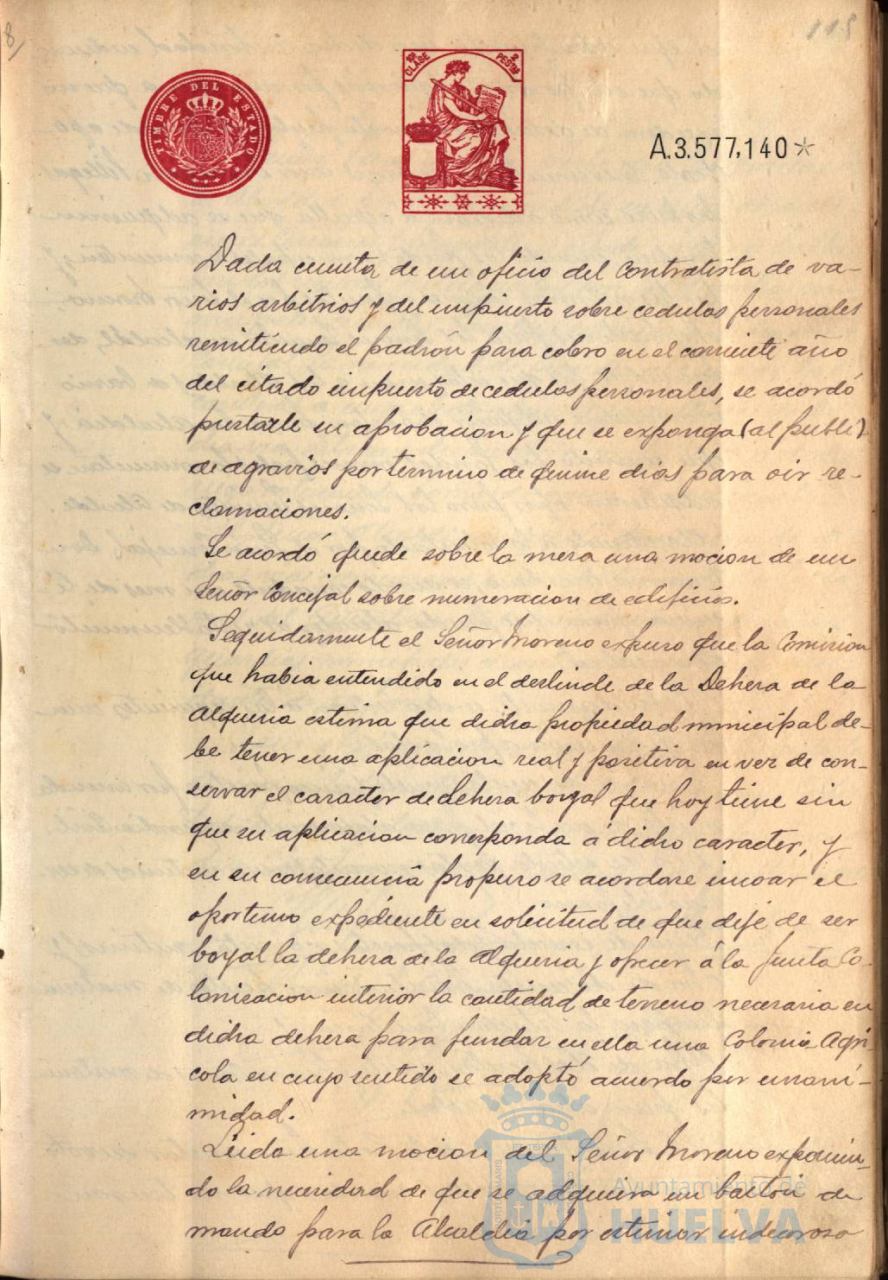 8/
115
TIMBRE DEL ESTADO
CLASE
PESETAS
A.3.577,140*
Dada cuenta de un oficio del Contratista de va-
rios arbitrios y del impuesto sobre cedulas personales
remitiendo el padrón para cobro en el corriente año
del citado impuesto de cedulas personales, se acordó
prestarle su aprobacion y que se exponga (al public)
de agravios por termino de quince dias para oir re-
clamaciones.
Se acordó quede sobre la mesa una mocion de un
Señor Concejal sobre numeracion de edificios.
Seguidamente el Señor Moreno expuso que la Comision
que habia entendido en el deslinde de la Dehesa de la
Alqueria estima que dicha propiedad municipal de-
be tener una aplicacion real y positiva en vez de con-
servar el caracter de dehesa boyal que hoy tiene sin
que su aplicacion corresponda á dicho caracter, y
en su consecuencia propuso se acordase incoar el
oportuno expediente en solicitud de que deje de ser
boyal la dehesa de la Alqueria y ofrecer á la Junta Co-
lonizacion interior la cantidad de terreno necesaria en
dicha dehesa para fundar en ella una Colonia Agri-
cola en cuyo sentido se adoptó acuerdo por unani-
midad.
Leida una mocion del Señor Moreno exponien-
do la necesidad de que se adquiera un bastón de
mando para la Alcaldia por estimar indecoroso
Ayuntamiento de
HUELVA